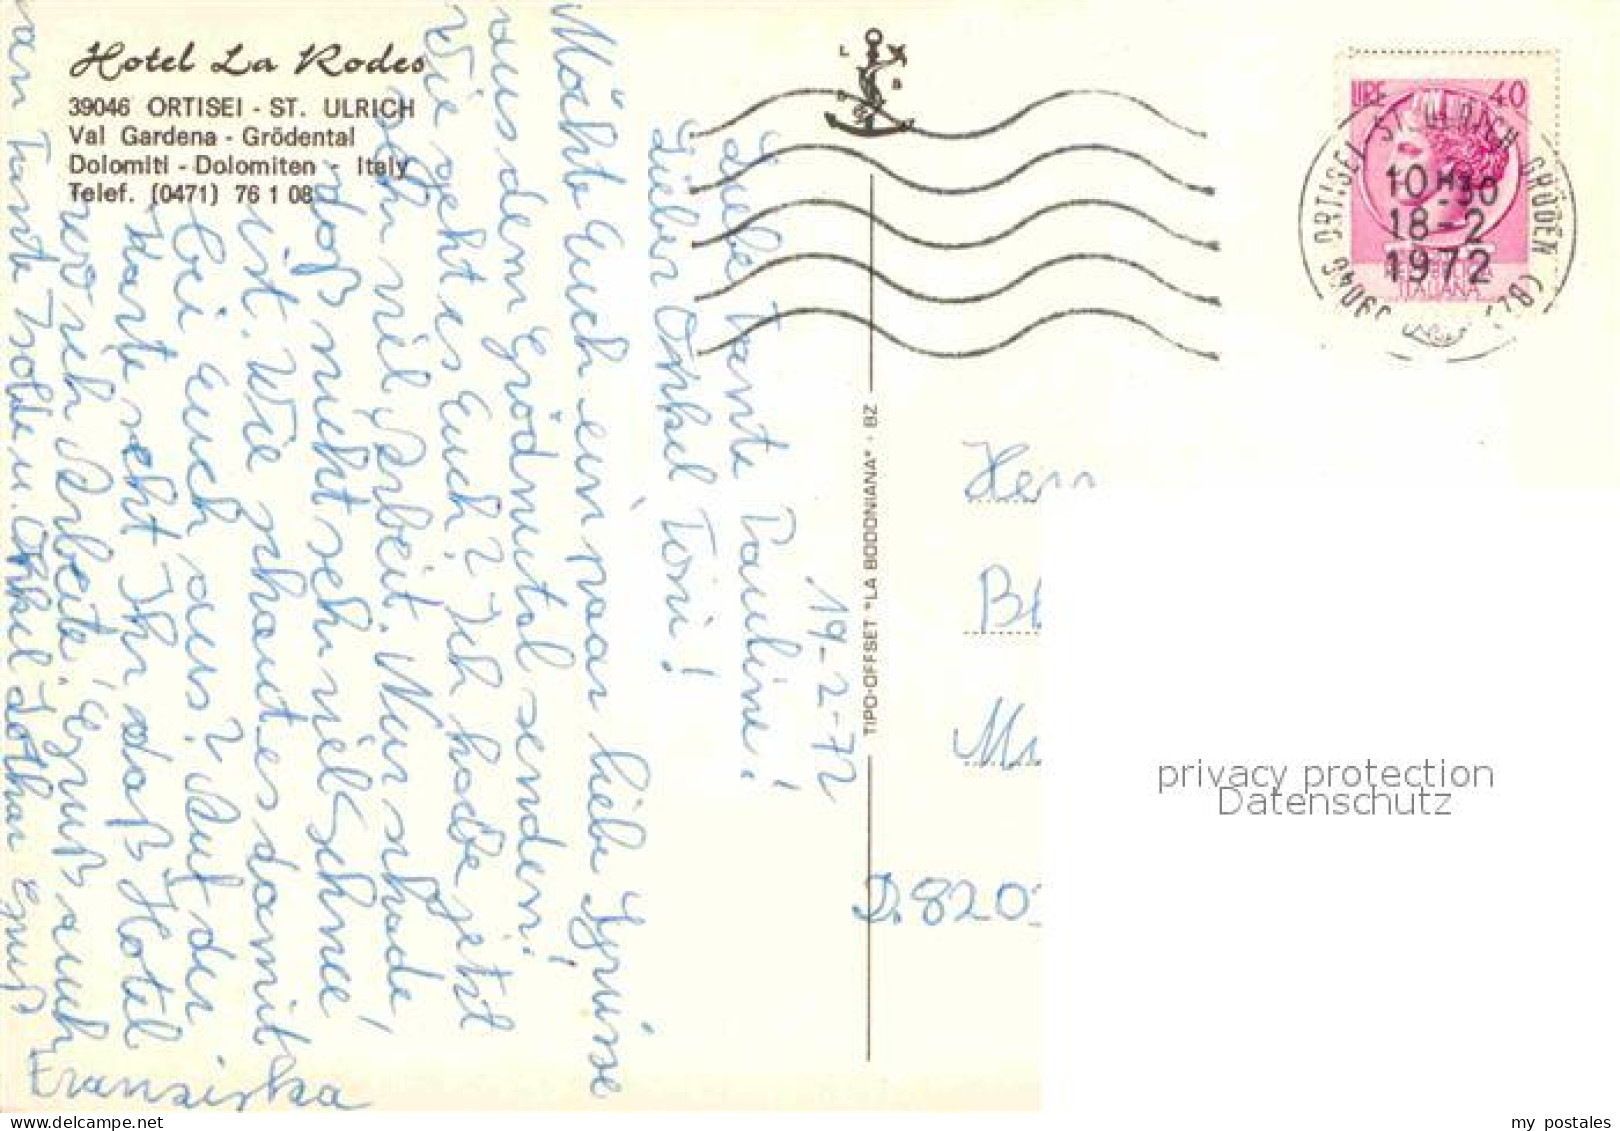 Hotel La Rodes
39046 ORTISEI - ST. ULRICH
Val Gardena - Grödental
Dolomiti - Dolomiten - Italy
Telef. (0471) 76 1 08
LIRE 40
ITALIANA
39046 ORTISEI ST. ULRICH GRÖDEN (BZ)
10 H 30
18-2
1972
TIPO-OFFSET "LA BODONIANA" - BZ
19-2-72
Liebe Tante Pauline!
Lieber Onkel Toni!
Möchte Euch ein paar liebe Grüsse
aus dem Grödnertal senden!
Wie geht es Euch? Ich habe jetzt
sehr viel Arbeit. Nur schade,
daß nicht sehr viel Schnee
ist. Wie schaut es damit
bei Euch aus? Auf der
Karte seht Ihr das Hotel
wo ich Arbeite! Gruß auch
an Tante Isolde u. Onkel Lothar Gruß
Franziska
Herr
D. 820
privacy protection
Datenschutz
my postales